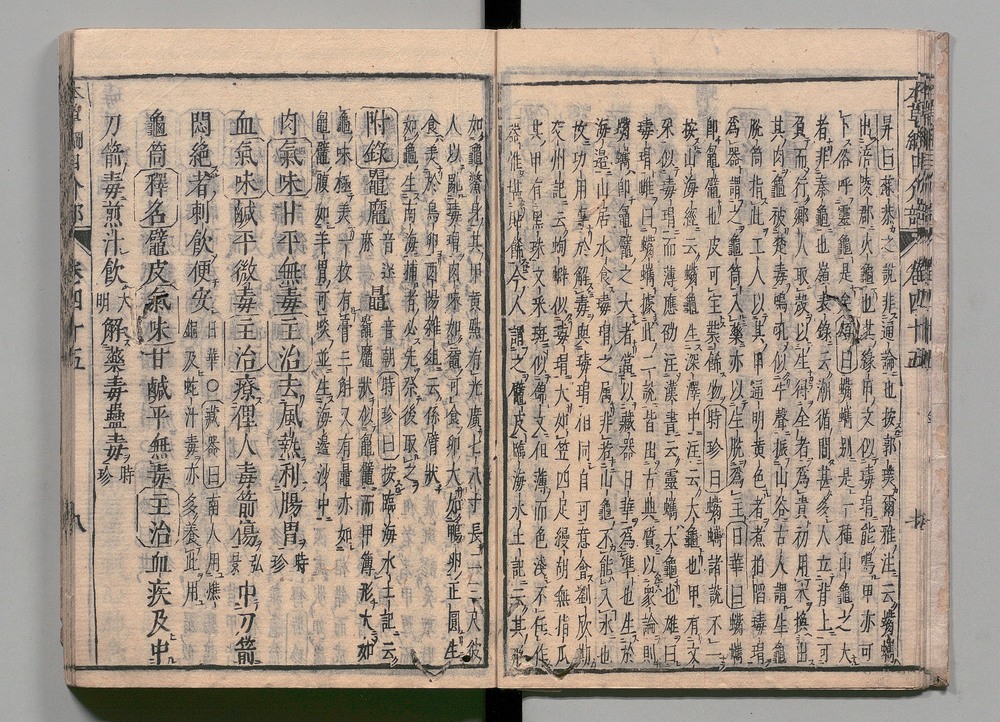 昇曰蔡恭之說非通論也按郭璞爾雅注云蠵蠵
出涪陵郡大龜也其緣甲文似瑇瑁能鳴甲亦可
卜俗呼靈龜是矣頌曰蠵蠵別是一種山龜之大
者非秦龜也嶺表錄云潮循間甚多人立背上可
負而行鄉人取殼以生得全者爲貴初用木換出
其肉龜被楚毒鳴吼如牛聲振山谷古人謂生龜
脫筒指此工人以其甲通明黃色者煮拍陷瑇瑁
爲器謂之龜筒入藥亦以生脫爲上日華曰蠵蠵
即鼊也皮可寶裝飾物時珍曰蠵蠵諸說不一
按山海經云蠵龜生深澤中注云大龜也甲有文
采似瑇瑁而薄應劭注漢書云靈蠵大龜也雄曰
毒瑁雌曰蠵據此二說皆出古典質以衆論則
蠵即鼊之大者當以藏器日華爲準也生於
海邊山居水食瑇瑁之屬非若山龜不能入水也
故功用專於解毒與瑇瑁相同自可意會劉欣期
交州記云蚼似瑇瑁大如笠四足縵胡無指爪
其甲有黑珠文采斑似錦文但薄而色淺不任作
器惟堪貼飾今人謂之鼊皮臨海水土記云其形
如龜鱉身其甲黃點有光廣七八寸長二三尺彼
人以亂瑇瑁肉味如黿可食卵大如鴨卵正圓生
食美於鳥卵酉陽雜俎云係臂狀
如龜生南海捕者必先祭後取之
附錄鼊音麻鼂音迷鼂音朝時珍曰按臨海水土記云鼊狀似鼊而甲薄形大如
龜味極美一枚有膏三斛又有鼂亦如
鼊腹如羊胃可啖並生海邊沙中
肉氣味甘平無毒主治去風熱利腸胃時珍
血氣味鹹平微毒主治療俚人毒箭傷弘景中刀箭
悶絕者刺飲便安日華○藏器曰南人用燋銅及蛇汁毒亦多養此用
龜筒釋名鼊皮氣味甘鹹平無毒主治血疾及中
刀箭毒煎汁飲大明解藥毒蠱毒時珍
卷四十五
卷四十五